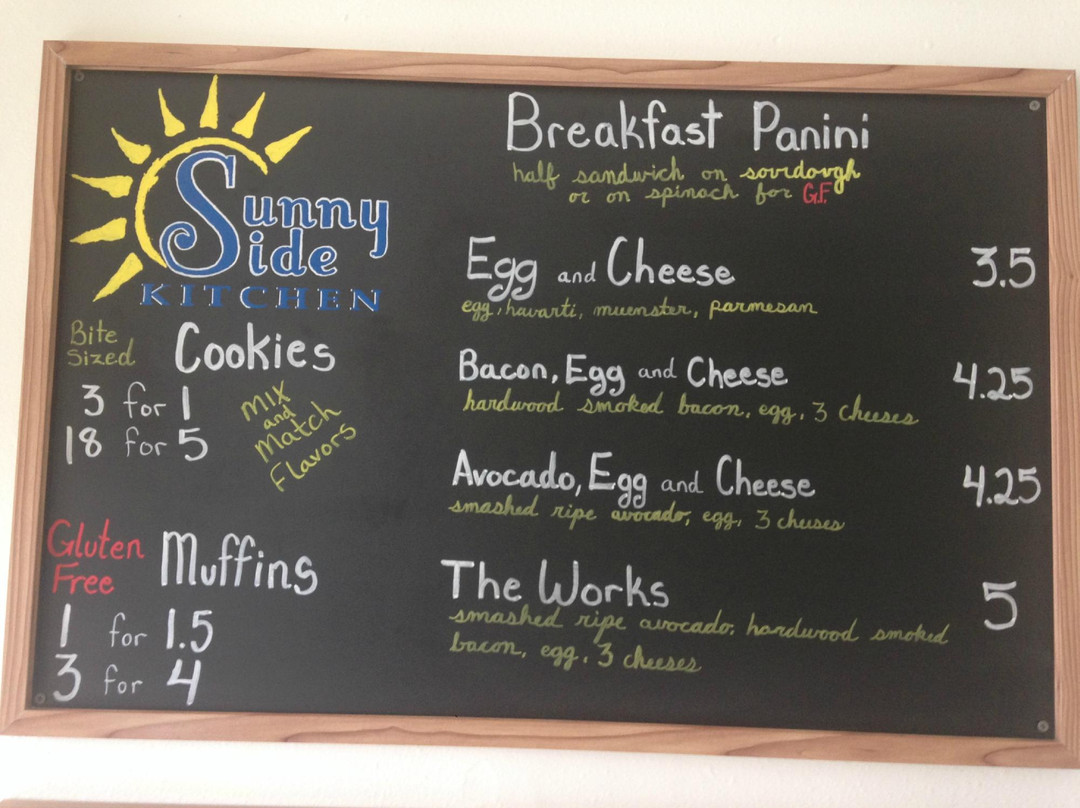 Sunny
Side
KITCHEN
Bite
Sized
Cookies
3 for 1
18 for 5
Mix
and
Match
Flavors
Gluten
Free
Muffins
1 for 1.5
3 for 4
Breakfast Panini
half sandwich on sourdough
or on spinach for G.F.
Egg and Cheese 3.5
egg, havarti, muenster, parmesan
Bacon, Egg and Cheese 4.25
hardwood smoked bacon, egg, 3 cheeses
Avocado, Egg and Cheese 4.25
smashed ripe avocado, egg, 3 cheeses
The Works 5
smashed ripe avocado, hardwood smoked
bacon, egg, 3 cheeses